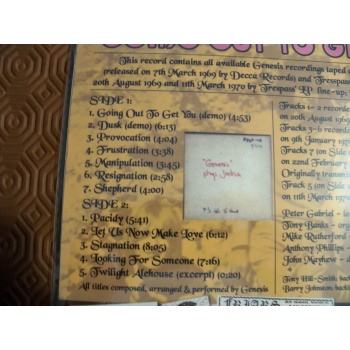 This record contains all available Genesis recordings taped
(released on 7th March 1969 by Decca Records) and "Tresspass
20th August 1969 and 11th March 1970 by Trespass' LP line-up;
SIDE 1:
1. Going Out To Get You (demo) (4:53)
2. Dusk (demo) (6:13)
3. Provocation (4:04)
4. Frustration (3:38)
5. Manipulation (3:45)
6. Resignation (2:58)
7. Shepherd (4:00)
SIDE 2:
1. Pacidy (5:41)
2. Let Us Now Make Love (6:12)
3. Stagnation (8:05)
4. Looking For Someone (7:16)
5. Twilight Alehouse (excerpt) (0:20)
All titles composed, arranged & performed by Genesis
"Genesis"
plays
Tracks 1-2 recorded
on 20th August 1969
Tracks 3-6 recorded
on 9th January 1970
Tracks 7 (on Side
on 22nd February
Originally transmi
Tracks 5 (on Side
on 11th March 1970
Peter Gabriel -
Tony Banks -
Mike Rutherford
Anthony Phillips
John Mayhew -
Tony Hill-Smith:
Barry Johnston: